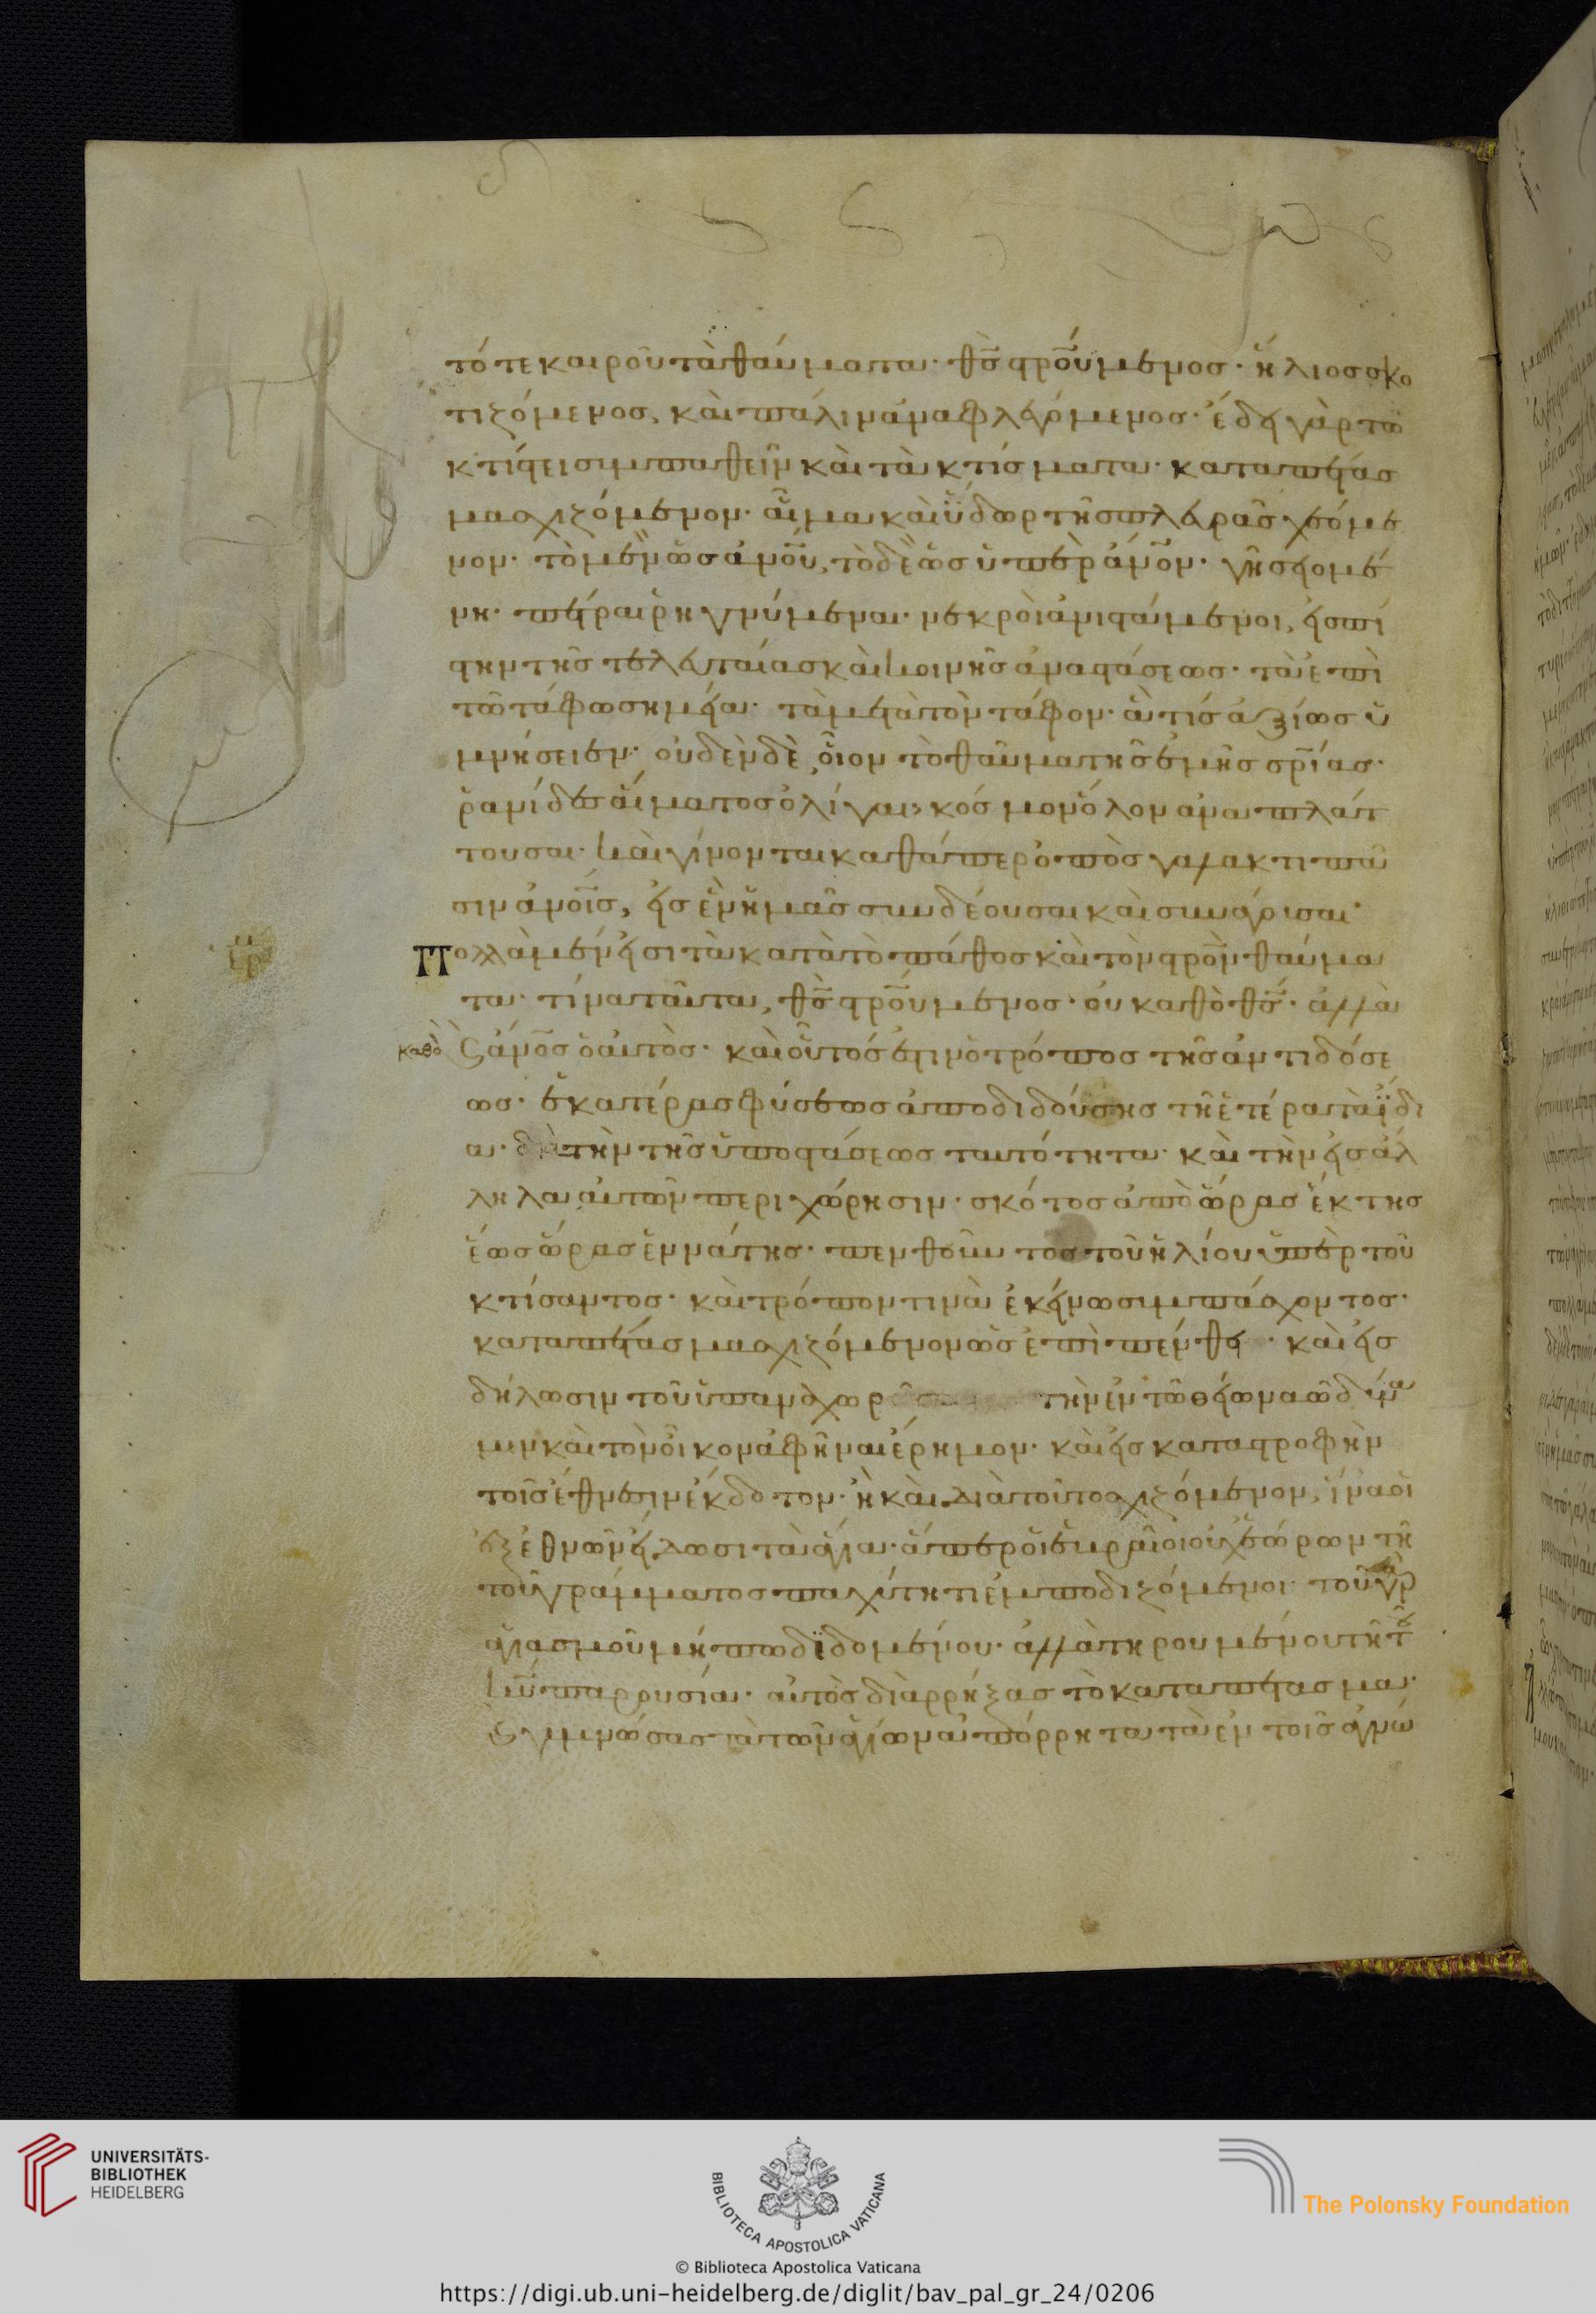 τότε καιροῦ τὰ θαύματα· θς̅ στρού̅μενος· ἥλιος σκο
τιζόμενος, καὶ πάλιν ἀναφλεγόμενος· ἔδει γὰρ τῶ
κτίστει συμπαθεῖν καὶ τὰ κτίσματα· καταπέτασ
μα σχιζόμενον· αἷμα καὶ ὕδωρ τῆς πλευρᾶς χεόμε
νον· τὸ μὲν ὡς ἀνο̅ῦ, τὸ δὲ ὡς ὑπὲρ ἄνο̅ν· γῆ σειομέ
νη· πέτραι ῥηγνύμεναι· νεκροὶ ἀνιστάμενοι, εἰς πί
στιν τῆς τελευταίας καὶ κοινῆς ἀναστάσεως· τὰ ἐπὶ
τῶ τάφω σημεῖα· τὰ μετὰ τὸν τάφον· ἃ τίς ἀξίως ὑ
μνήσειεν· οὐδὲν δὲ, οἷον τὸ θαῦμα τῆς ἐμῆς σρ̅ίας·
ῥανίδες αἵματος ὀλίγαι, κόσμον ὅλον ἀναπλάτ
τουσαι· καὶ γίνονται καθάπερ ὀπὸς γάλακτι πᾶ
σιν ἀνο̅ις, εἰς ἓν ἡμᾶς συνδέουσαι καὶ συνάγουσαι·
Πολλὰ μέν εἰσι τὰ κατὰ τὸ πάθος καὶ τὸν στρο̅ν θαύμα
τα· τίνα ταῦτα, θς̅ στρού̅μενος· οὐ καθὸ θς̅· ἀλλὰ
καθὸ ἄνο̅ς ὁ αὐτὸς· καὶ οὗτός ἐστιν ὁ τρόπος τῆς ἀντιδόσε
ως· ἑκατέρας φύσεως ἀποδιδούσης τῆ ἑτέρα τὰ ἴδι
α· διὰ τὴν τῆς ὑποστάσεως ταυτότητα· καὶ τὴν εἰς ἄλ
ληλα αὐτῶν περιχώρησιν· σκότος ἀπὸ ὥρας ἕκτης
ἕως ὥρας ἐννάτης· πενθοῦντος τοῦ ἡλίου ὑπὲρ τοῦ
κτίσαντος· καὶ τρόπον τινὰ ἐκείνω συμπάσχοντος·
καταπέτασμα σχιζόμενον ὡς ἐπὶ πένθει· καὶ εἰς
δήλωσιν τοῦ ὑπαναχωρῆσαι τὴν ἐν τῶ θείω ναῶ δύνα
μιν καὶ τὸν οἶκον ἀφῆναι ἔρημον· καὶ εἰς καταστροφὴν
τοῖς ἔθνεσιν ἔκδοτον· ἢ καὶ διὰ τοῦτο σχιζόμενον, ἵνα οἱ
ἐξ ἐθνῶν εἴδωσι τὰ ἅγια· ἅπερ οἱ ἑβραῖοι οὐχ ἑώρων τῆ
τοῦ γράμματος παχύτητι ἐμποδιζόμενοι· τοῦ γὰρ
ἁγιασμοῦ μήπω διδομένου· ἀλλὰ τηρουμένου τῆ τοῦ χυ̅
κυ̅ παρουσία· αὐτὸς διαρρήξας τὸ καταπέτασμα·
ἐγύμνωσας τὰ τῶν ἁγίων ἀπόρρητα τὰ ἐν τοῖς ἄνω
UNIVERSITÄTS-
BIBLIOTHEK
HEIDELBERG
BIBLIOTECA APOSTOLICA VATICANA
The Polonsky Foundation
© Biblioteca Apostolica Vaticana
https://digi.ub.uni-heidelberg.de/diglit/bav_pal_gr_24/0206